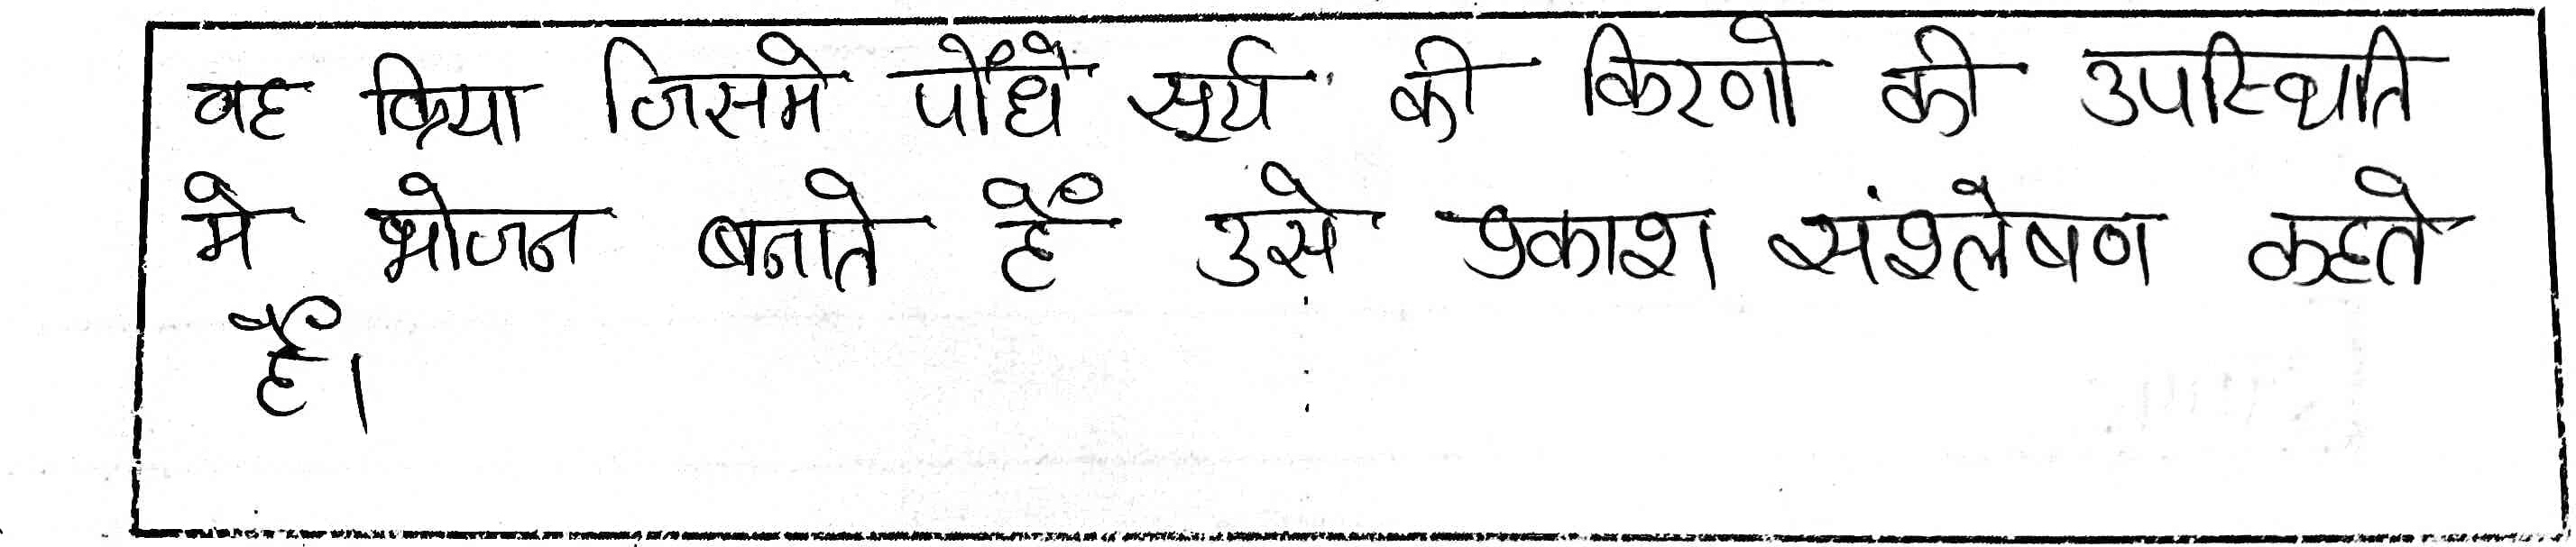 वह क्रिया जिसमे पौधे सूर्य की किरणो की उपस्थिति
मे भोजन बनाते है उसे प्रकाश संश्लेषण कहते
है।